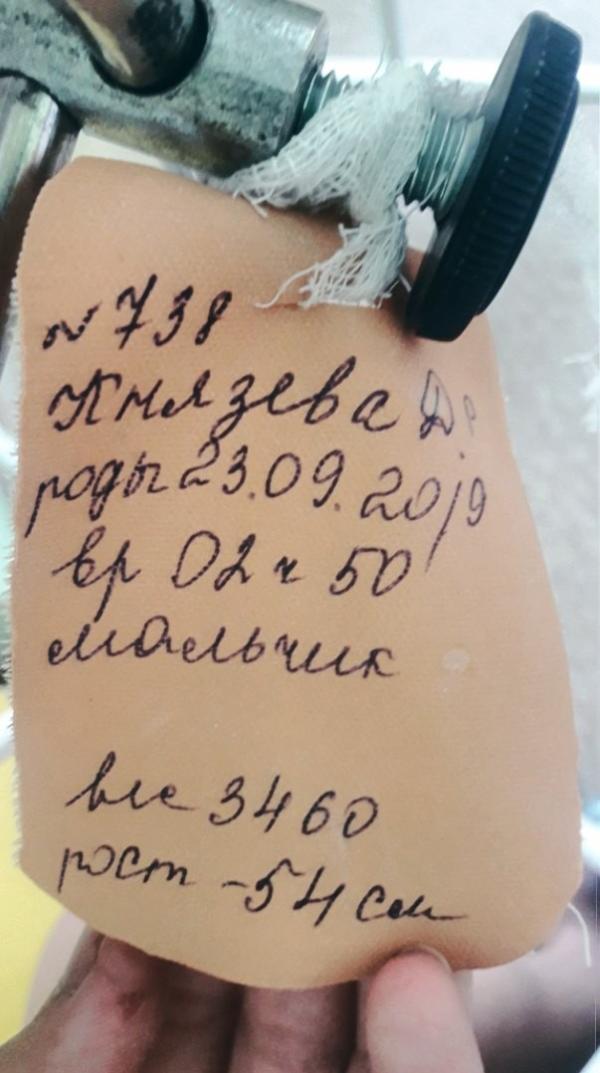 № 738
Князева
роды 23.09.2019
вр 02ч 50
мальчик
вес 3460
рост - 54 см